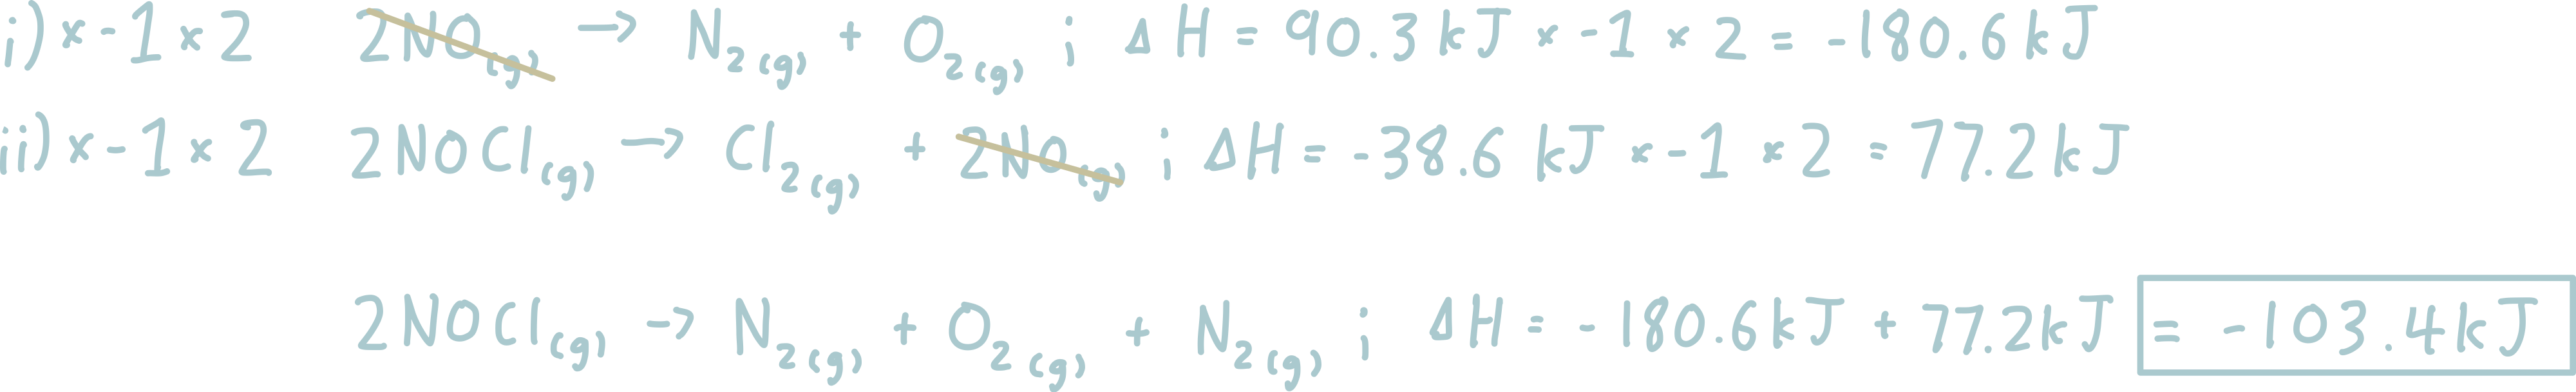 i) x -1 x 2 2NO(g) → N2(g) + O2(g) ; ΔH = 90.3 kJ x -1 x 2 = -180.6 kJ
ii) x -1 x 2 2NOCl(g) → Cl2(g) + 2NO(g) ; ΔH = -38.6 kJ x -1 x 2 = 77.2 kJ
2NOCl(g) → N2(g) + O2(g) + N2(g) ; ΔH = -180.6 kJ + 77.2 kJ = -103.4 kJ